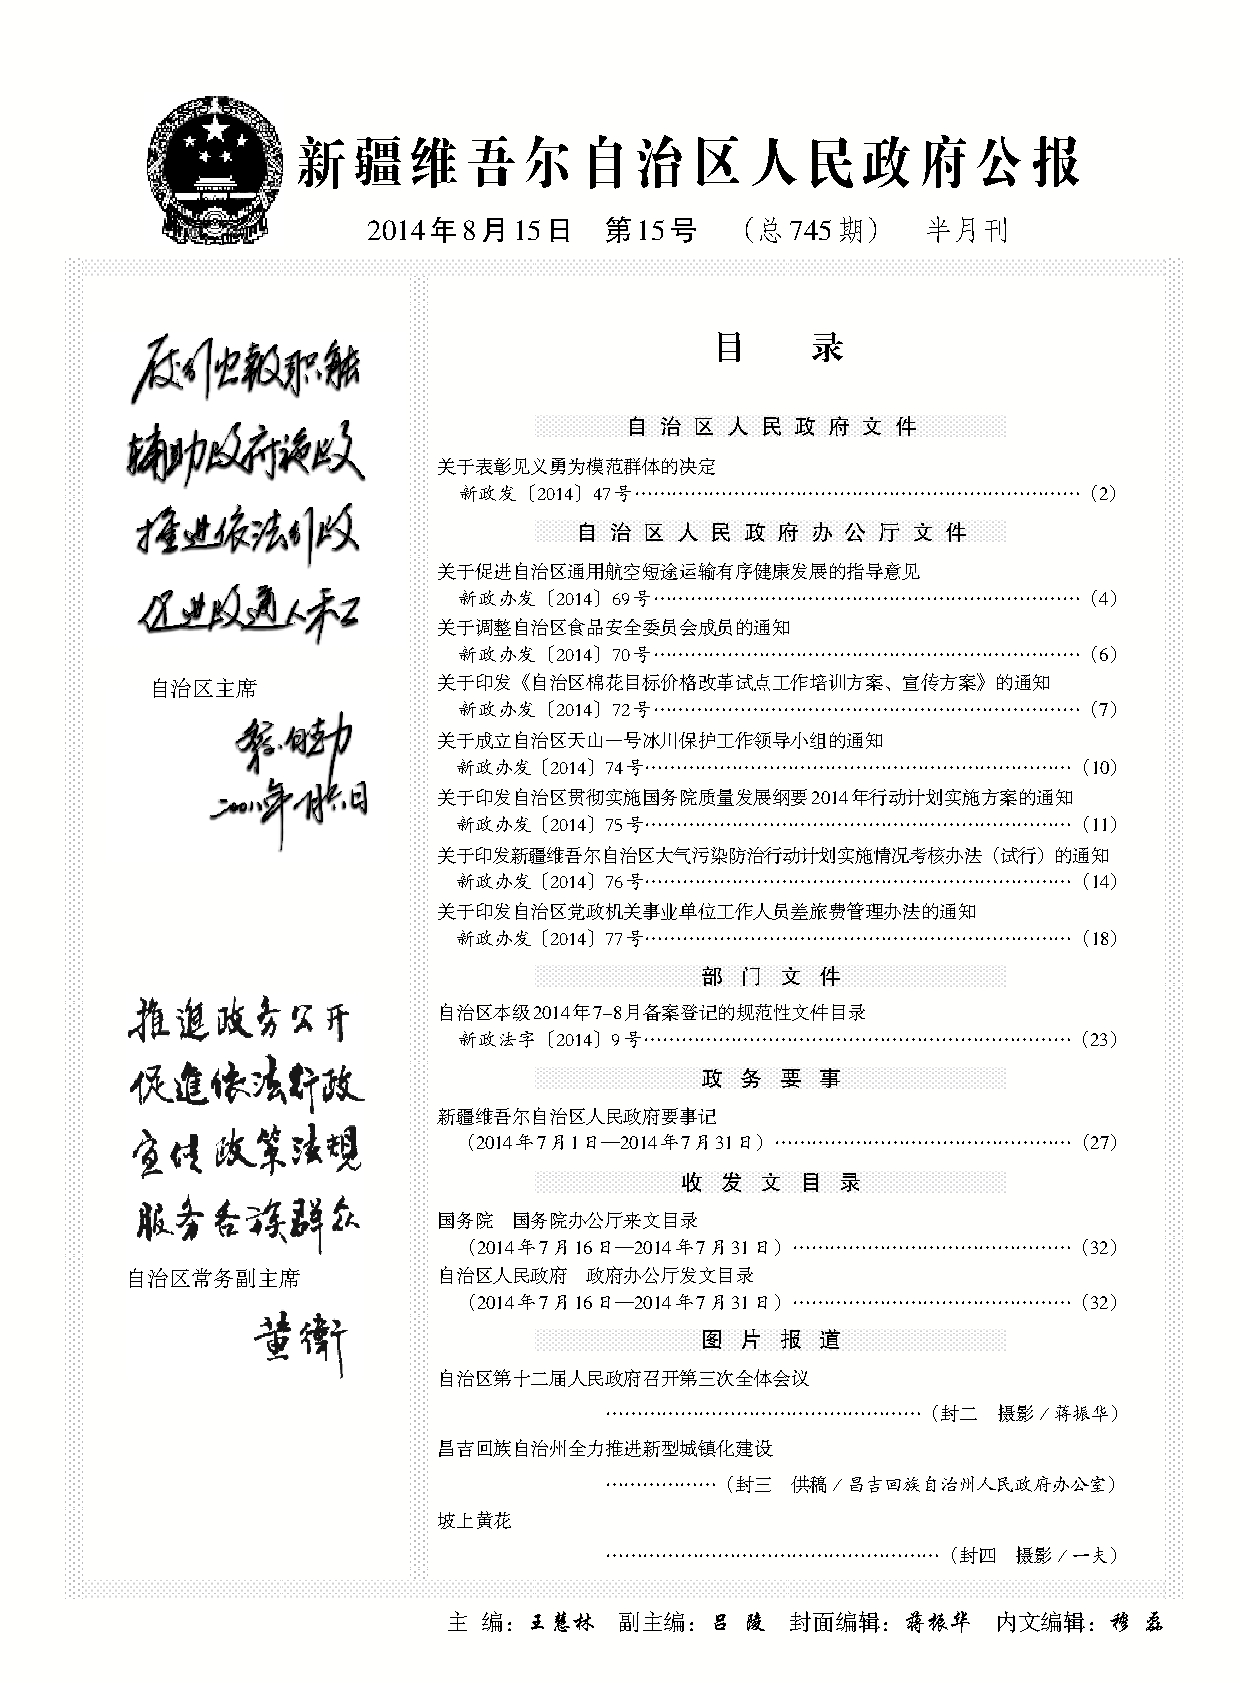 新疆维吾尔自治区人民政府公报
2014年8月15日　第15号　（总745期）　半月刊
辅助政府施政
推进依法行政
促进政通人和
自治区主席
推進政务公开
促進依法行政
宣传政策法规
服务各族群众
自治区常务副主席
黄衛
目　录
自治区人民政府文件
关于表彰见义勇为模范群体的决定
新政发〔2014〕47号……………………（2）
自治区人民政府办公厅文件
关于促进自治区通用航空短途运输有序健康发展的指导意见
新政办发〔2014〕69号……………………（4）
关于调整自治区食品安全委员会成员的通知
新政办发〔2014〕70号……………………（6）
关于印发《自治区棉花目标价格改革试点工作培训方案、宣传方案》的通知
新政办发〔2014〕72号……………………（7）
关于成立自治区天山一号冰川保护工作领导小组的通知
新政办发〔2014〕74号……………………（10）
关于印发自治区贯彻实施国务院质量发展纲要2014年行动计划实施方案的通知
新政办发〔2014〕75号……………………（11）
关于印发新疆维吾尔自治区大气污染防治行动计划实施情况考核办法（试行）的通知
新政办发〔2014〕76号……………………（14）
关于印发自治区党政机关事业单位工作人员差旅费管理办法的通知
新政办发〔2014〕77号……………………（18）
部门文件
自治区本级2014年7-8月备案登记的规范性文件目录
新政法字〔2014〕9号……………………（23）
政务要事
新疆维吾尔自治区人民政府要事记
（2014年7月1日—2014年7月31日）……………………（27）
收发文目录
国务院　国务院办公厅来文目录
（2014年7月16日—2014年7月31日）……………………（32）
自治区人民政府　政府办公厅发文目录
（2014年7月16日—2014年7月31日）……………………（32）
图片报道
自治区第十二届人民政府召开第三次全体会议
……………………（封二　摄影/蒋振华）
昌吉回族自治州全力推进新型城镇化建设
………………（封三　供稿/昌吉回族自治州人民政府办公室）
坡上黄花
……………………（封四　摄影/一夫）
主　编：王慧林　副主编：吕　陵　封面编辑：蒋振华　内文编辑：穆　磊